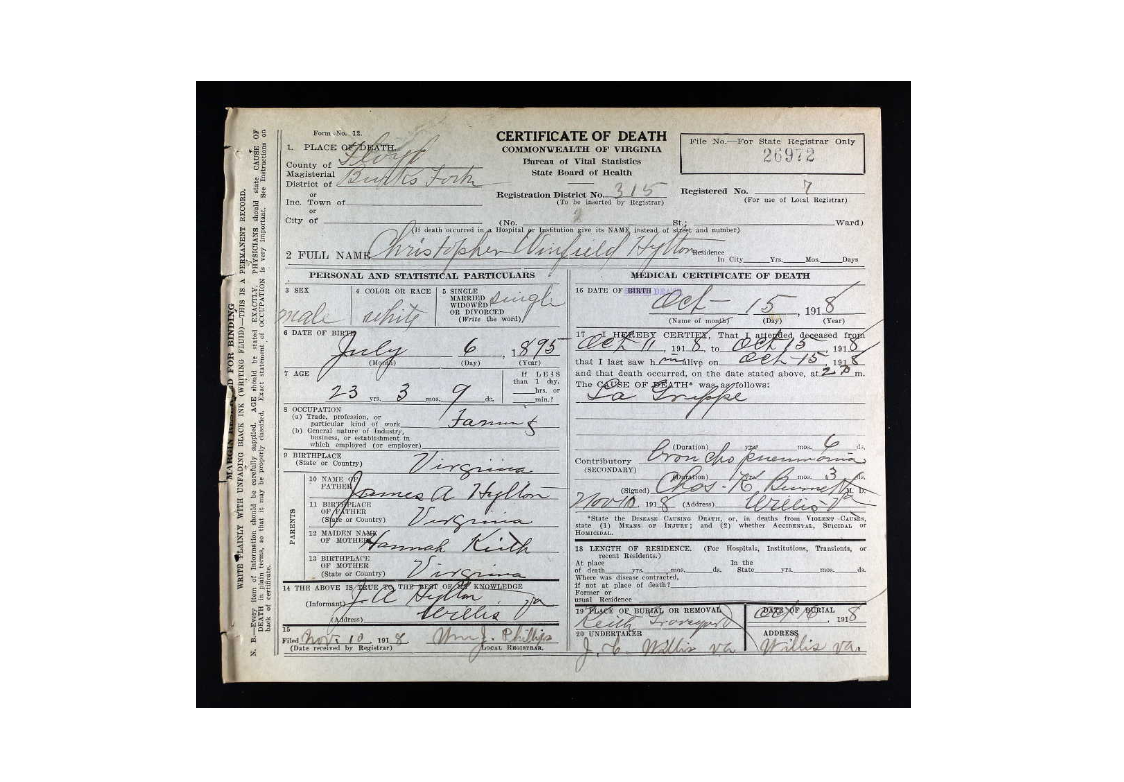 MARGIN RESERVED FOR BINDING
WRITE PLAINLY WITH UNFADING BLACK INK (WRITING FLUID)—THIS IS A PERMANENT RECORD.
N. B.—Every item of Information should be carefully supplied. AGE should be stated EXACTLY. PHYSICIANS should state CAUSE OF
DEATH in plain terms, so that it may be properly classified. Exact statement of OCCUPATION is very important. See Instructions on
back of certificate.
Form No. 12.
CERTIFICATE OF DEATH
COMMONWEALTH OF VIRGINIA
Bureau of Vital Statistics
State Board of Health
File No.—For State Registrar Only
26972
1. PLACE OF DEATH
County of Floyd
Magisterial
District of Burks Fork
or
Inc. Town of
or
City of
Registration District No. 315
(To be inserted by Registrar)
Registered No. 7
(For use of Local Registrar)
(No. St.; Ward)
(If death occurred in a Hospital or Institution give its NAME instead of street and number)
2 FULL NAME Christopher Winfield Hylton
Residence
In City Yrs. Mos. Days
PERSONAL AND STATISTICAL PARTICULARS
3 SEX
male
4 COLOR OR RACE
white
5 SINGLE
MARRIED
WIDOWED
OR DIVORCED
(Write the word)
single
6 DATE OF BIRTH
July 6, 1895
(Month) (Day) (Year)
7 AGE
23 yrs. 3 mos. 9 ds.
If LESS
than 1 day,
hrs. or
min.?
8 OCCUPATION
(a) Trade, profession, or
particular kind of work Farming
(b) General nature of Industry,
business, or establishment in
which employed (or employer)
9 BIRTHPLACE
(State or Country) Virginia
PARENTS
10 NAME OF
FATHER James A Hylton
11 BIRTHPLACE
OF FATHER
(State or Country) Virginia
12 MAIDEN NAME
OF MOTHER Hannah Keith
13 BIRTHPLACE
OF MOTHER
(State or Country) Virginia
14 THE ABOVE IS TRUE TO THE BEST OF MY KNOWLEDGE
(Informant) J A Hylton
(Address) Willis Va
15
Filed Nov. 10 1918 Wm J. Phillips
(Date received by Registrar) LOCAL REGISTRAR.
MEDICAL CERTIFICATE OF DEATH
16 DATE OF DEATH
Oct- 15, 1918
(Name of month) (Day) (Year)
17 I HEREBY CERTIFY, That I attended deceased from
Oct 11 1918 to Oct 15 1918
that I last saw him alive on Oct 15 1918
and that death occurred, on the date stated above, at 2 P m.
The CAUSE OF DEATH* was as follows:
La Grippe
(Duration) yrs. mos. 6 ds.
Contributory Broncho pneumonia
(SECONDARY)
(Duration) yrs. mos. 3 ds.
(Signed) Chas. K Burnett M. D.
Nov 10 1918 (Address) Willis Va
*State the DISEASE CAUSING DEATH, or, in deaths from VIOLENT CAUSES,
state (1) MEANS OF INJURY; and (2) whether ACCIDENTAL, SUICIDAL or
HOMICIDAL.
18 LENGTH OF RESIDENCE. (For Hospitals, Institutions, Transients, or
recent Residents.)
At place In the
of death yrs. mos. ds. State yrs. mos. ds.
Where was disease contracted,
if not at place of death?
Former or
usual Residence
19 PLACE OF BURIAL OR REMOVAL
Keith Graveyard
DATE OF BURIAL
Oct 16, 1918
20 UNDERTAKER
J. C. Willis Va
ADDRESS
Willis Va.